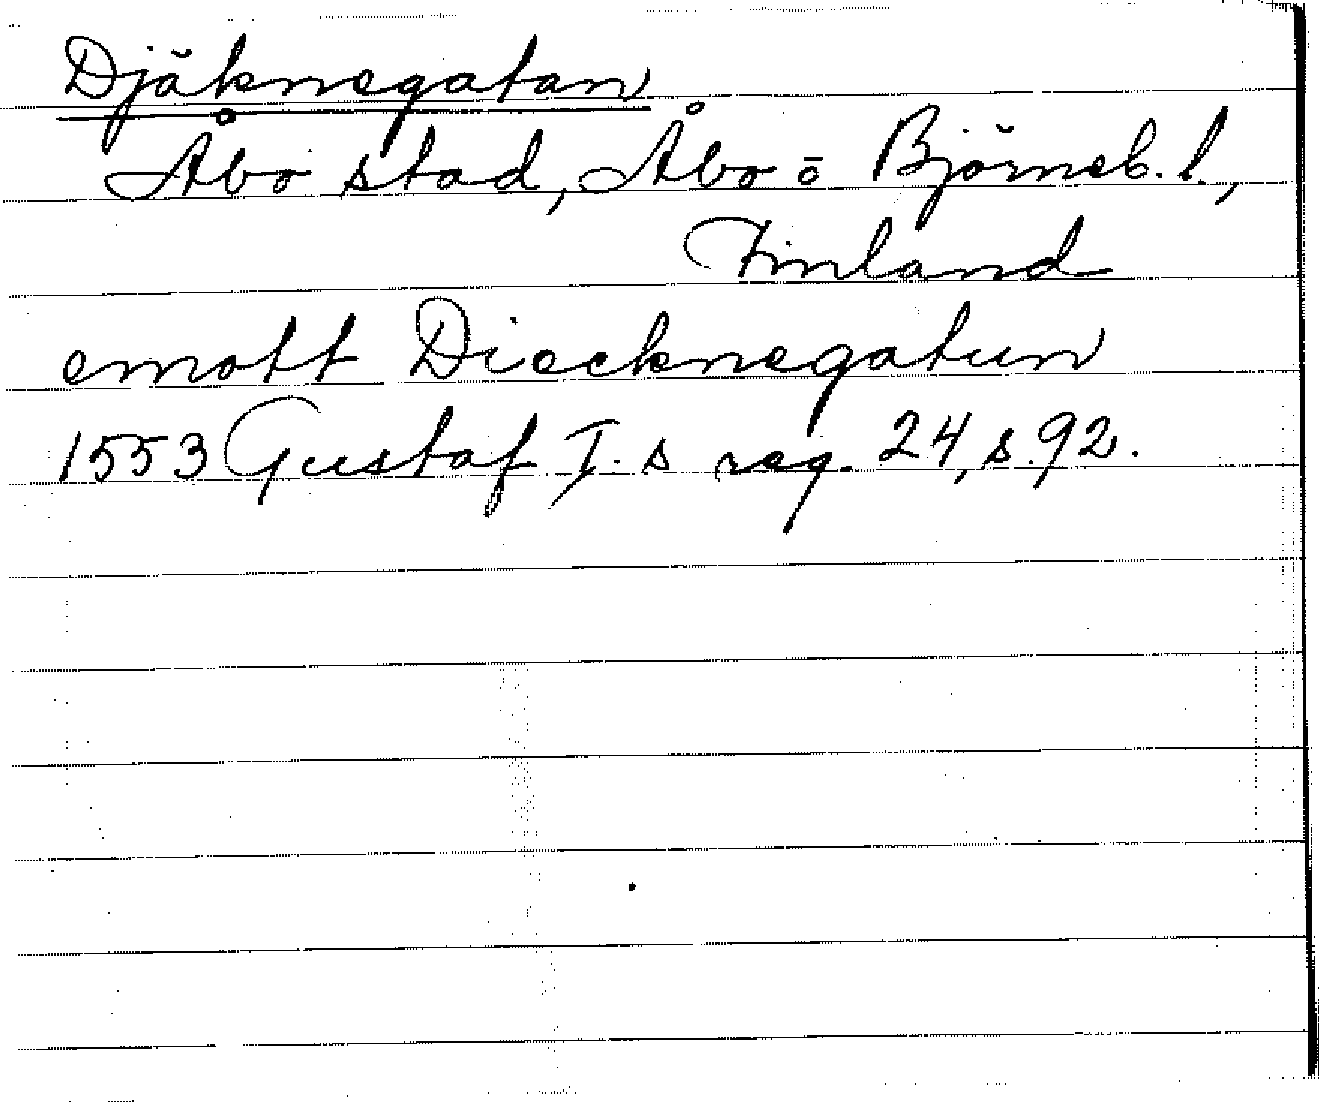 Djäknegatan
Åbo stad, Åbo o Björneb. l.,
Finland
emott Diecknegatun
1553 Gustaf I. s reg. 24, s. 92.